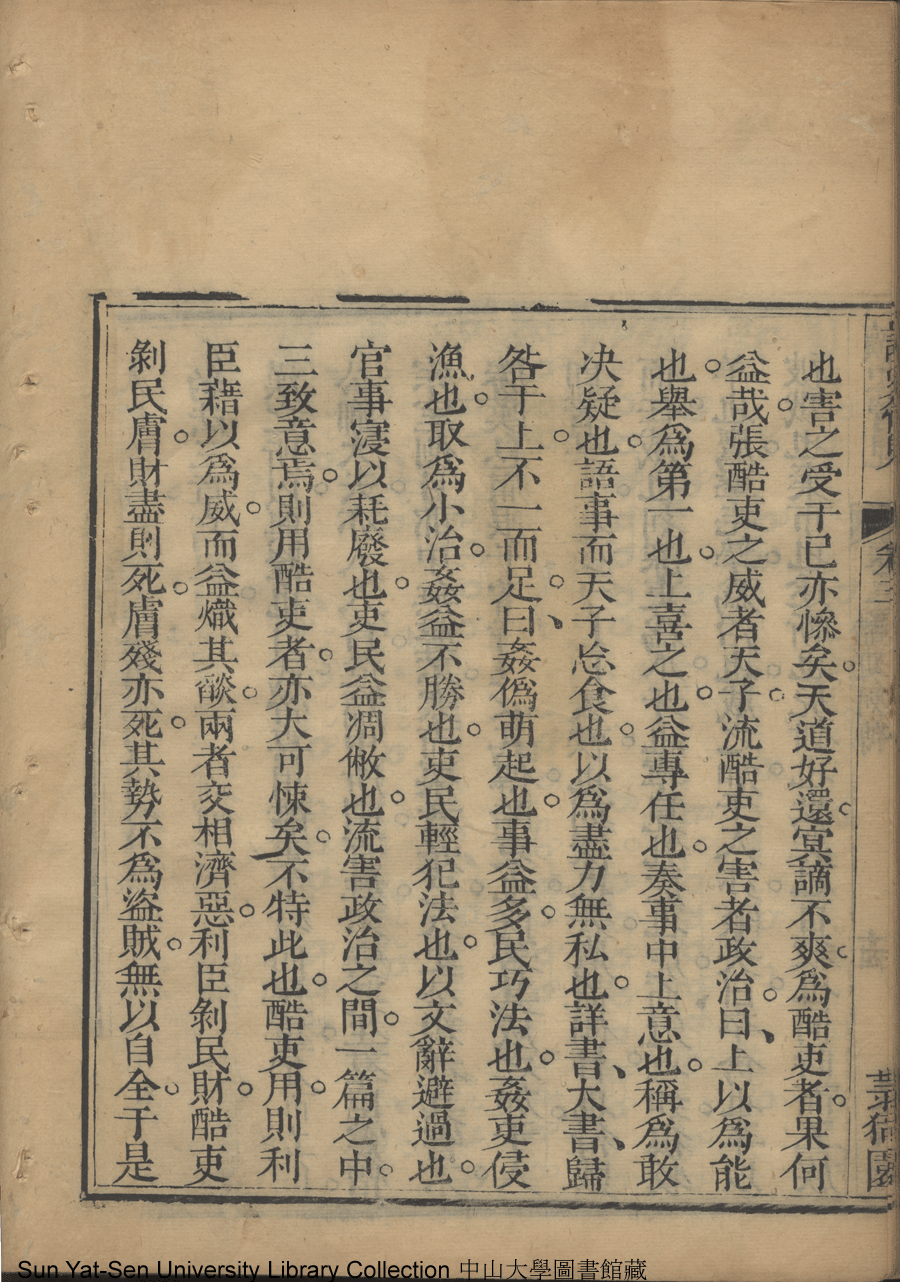 卷三
也害之受于已亦慘矣天道好還寘謫不爽爲酷吏者果何
益哉張酷吏之威者天子流酷吏之害者政治曰上以爲能
也舉爲第一也上喜之也益專任也奏事中上意也稱爲敢
決疑也語事而天子忘食也以爲盡力無私也詳書大書歸
咎于上不一而足曰姦僞萌起也事益多民巧法也姦吏侵
漁也取爲小治姦益不勝也吏民輕犯法也以文辭避過也
官事寖以耗廢也吏民益凋敝也流害政治之間一篇之中
三致意焉則用酷吏者亦大可悚矣不特此也酷吏用則利
臣藉以爲威而益熾其燄兩者交相濟惡利臣剝民財酷吏
剝民膚財盡則死膚殘亦死其勢不爲盜賊無以自全于是
Sun Yat-Sen University Library Collection 中山大學圖書館藏